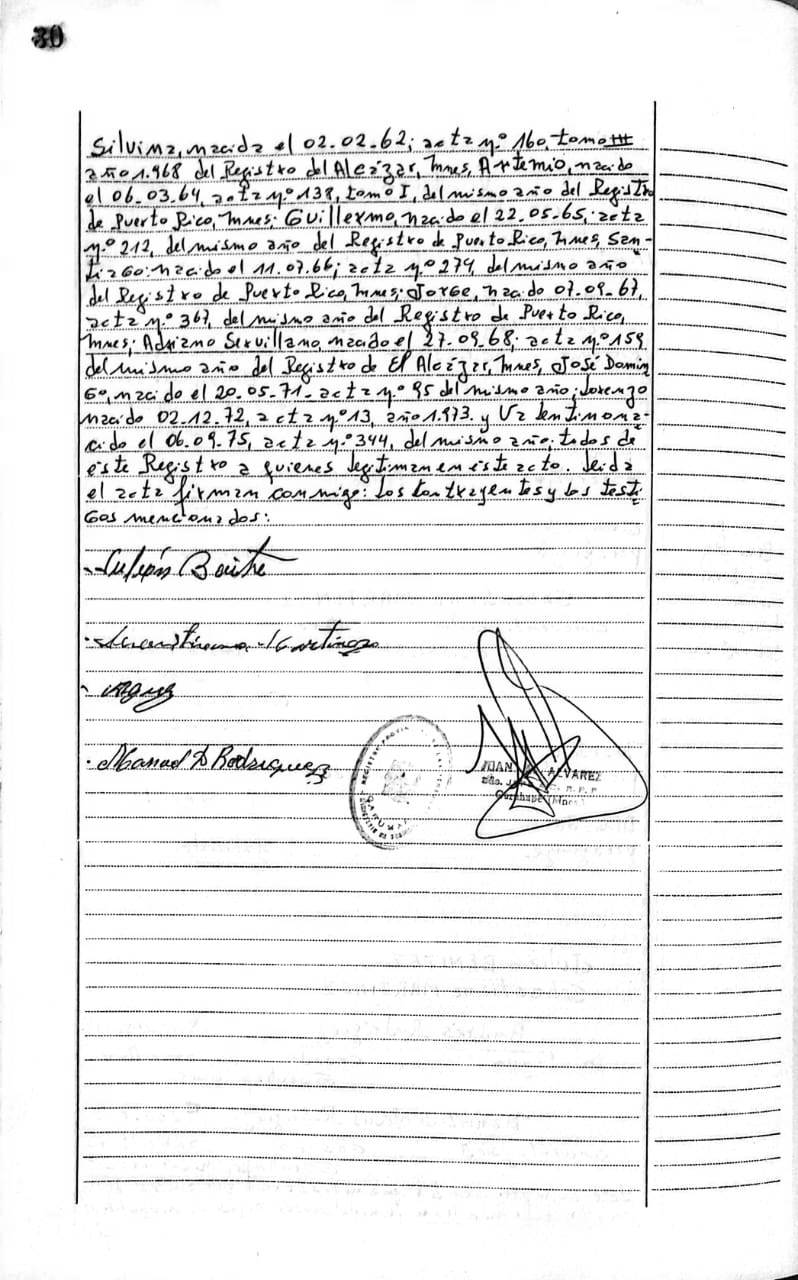 30
Silvina, nacida el 02.02.62; acta n.º 160, tomo III
año 1.968 del Registro del Alcázar, Mnes, Artemio, nacido
el 06.03.64, acta n.º 138, tomo I, del mismo año del Registro
de Puerto Rico, Mnes; Guillermo, nacido el 22.05.65; acta
n.º 212, del mismo año del Registro de Puerto Rico, Mnes, San-
tiago: nacido el 11.07.66; acta n.º 274, del mismo año
del Registro de Puerto Rico, Mnes; Jorge, nacido 07.09.67,
acta n.º 367, del mismo año del Registro de Puerto Rico,
Mnes; Adriano Servillano, nacido el 27.09.68; acta n.º 159
del mismo año del Registro de El Alcázar, Mnes, José Domin
go, nacido el 20.05.71. acta n.º 95 del mismo año; Lorenzo
nacido 02.12.72, acta n.º 13, año 1.973. y Valentino na-
cido el 06.09.75, acta n.º 344, del mismo año; todos de
éste Registro a quienes legitiman en éste acto. Leida
el acta firman conmigo: los contrayentes y los testi
gos mencionados:
Manuel D Rodriguez
JUAN ALVAREZ
Garuhapé (Mnes)